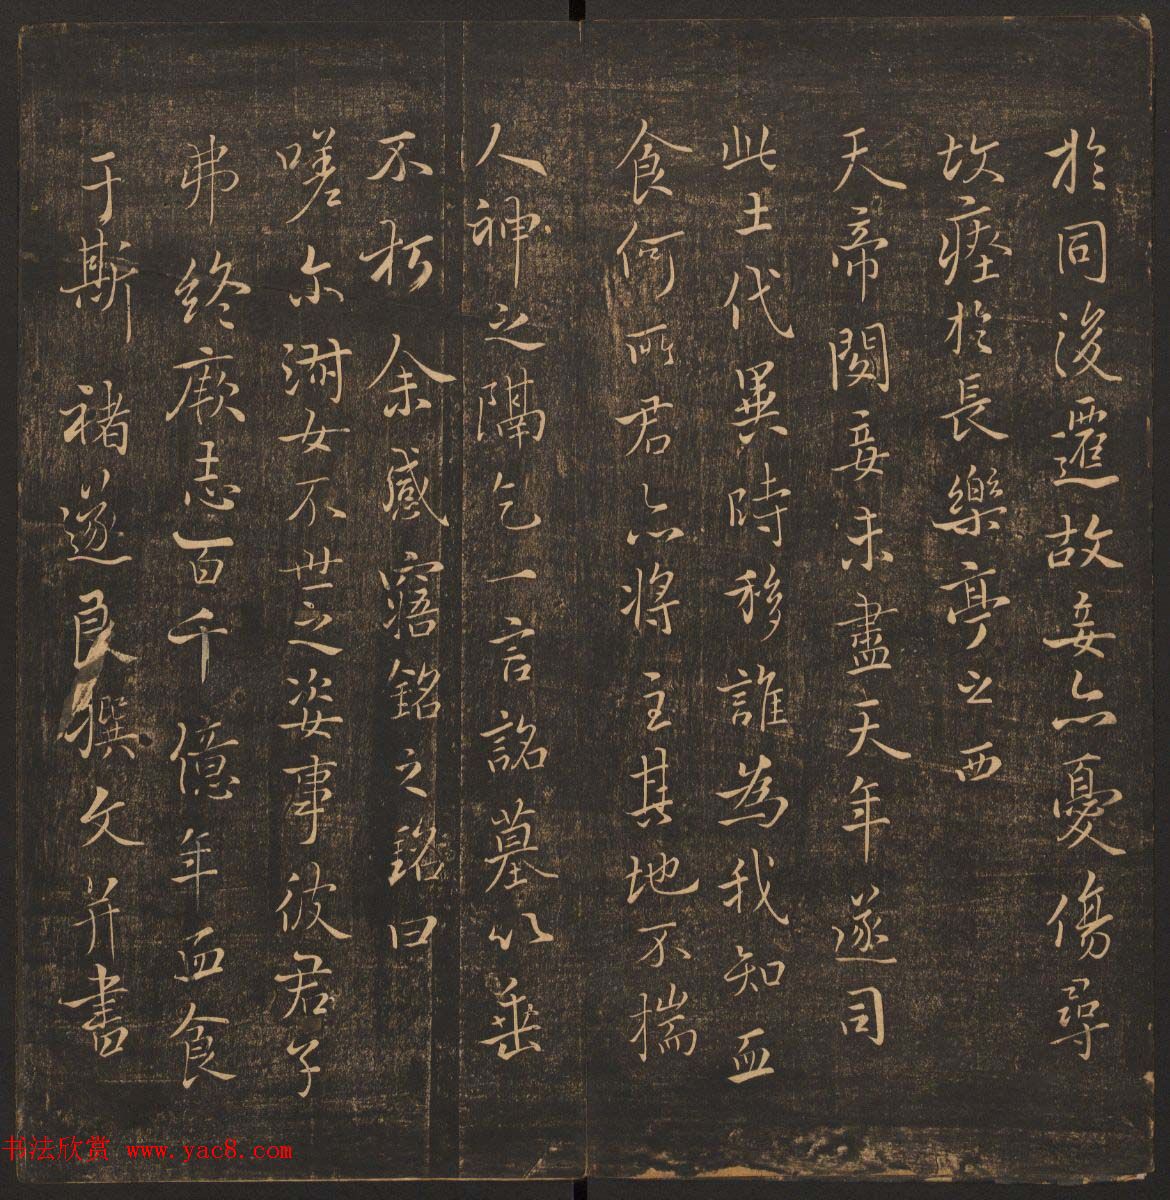 於同後遷故妾亦憂傷尋
故瘞於長樂亭之西
天帝閔妾未盡天年遂司
此土代異時移誰為我知血
食何所君亦將主其地不揣
人神之隔乞一言誌墓以垂
不朽余感寤銘之銘曰
嗟尔淑女不世之姿事彼君子
弗終厥志百千億年血食
于斯 褚遂良撰文并書
书法欣赏 www.yac8.com